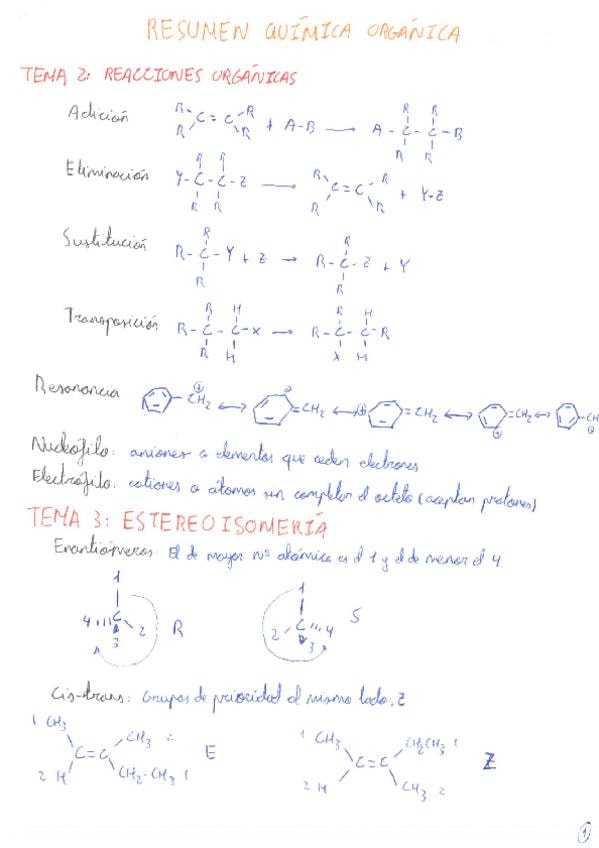 RESUMEN QUÍMICA ORGÁNICA
TEMA 2: REACCIONES ORGÁNICAS
Adición
R R C = C R R + A-B → A - C - C - B R R R R
Eliminación
Y - C - C - Z R R R R → R R C = C R R + Y-Z
Sustitución
R - C - Y + Z R R → R - C - Z + Y R R
Transposición
R - C - C - X R H R H → R - C - C - R R H X H
Resonancia
CH2 ↔ =CH2 ↔ =CH2 ↔ =CH2 ↔ CH
Nucleófilo: aniones o elementos que ceden electrones
Electrófilo: cationes o átomos sin completar el octeto (aceptan protones)
TEMA 3: ESTEREOISOMERÍA
Enantiómeros: El de mayor nº atómico es el 1 y el de menor el 4.
1 4 C 2 3 R
1 2 C 4 3 S
Cis-trans: Grupos de prioridad al mismo lado, Z
1 CH3 2 H C=C CH3 2 CH2-CH3 1 E
1 CH3 2 H C=C CH2CH3 1 CH3 2 Z
1